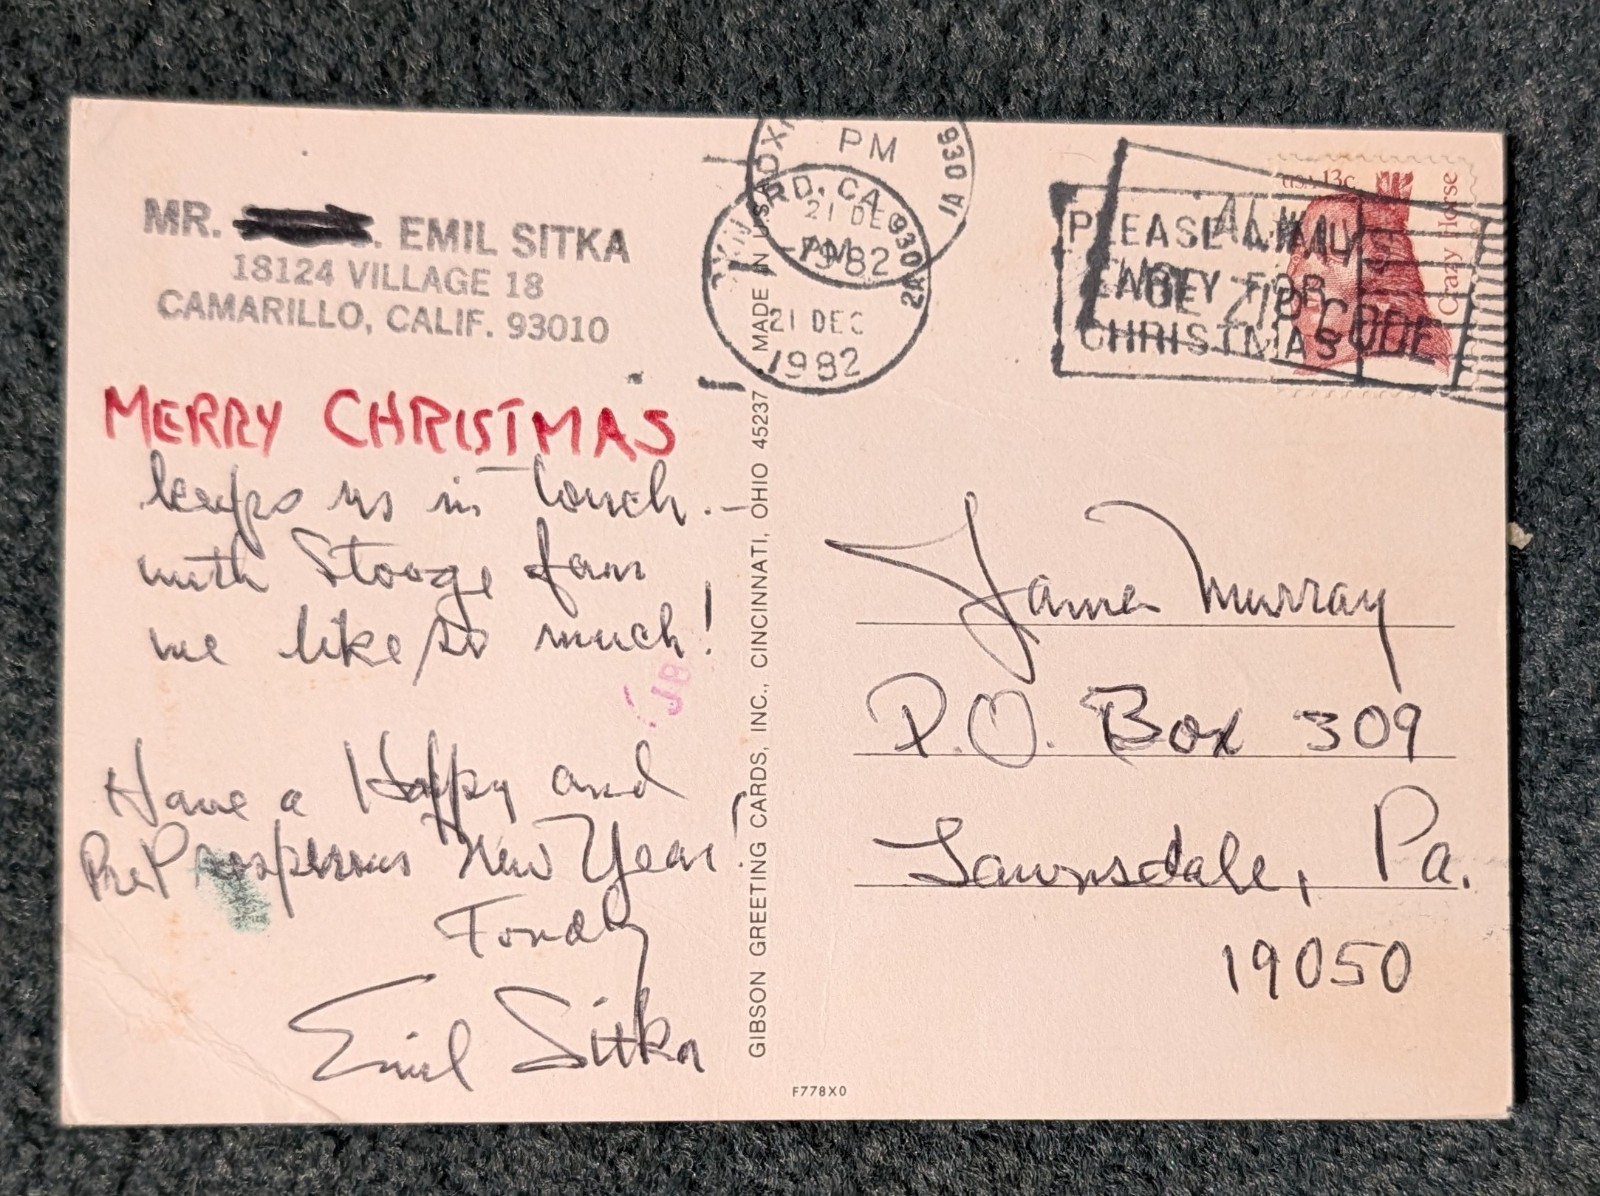 MR. EMIL SITKA
18124 VILLAGE 18
CAMARILLO, CALIF. 93010
MERRY CHRISTMAS
keeps us in touch.
with Stooge fans
we like so much!
Have a Happy and
PreProsperous New Year!
Fondly
Emil Sitka
GIBSON GREETING CARDS, INC., CINCINNATI, OHIO 45237 MADE IN U.S.A.
F778X0
PM
930
21 DEC
1982
OXNARD, CA 930
PM
21 DEC
1982
PLEASE MAIL
EARLY FOR
CHRISTMAS
ALWAYS
USE ZIP CODE
USA 13c
Crazy Horse
James Murray
P.O. Box 309
Lawnsdale, Pa.
19050